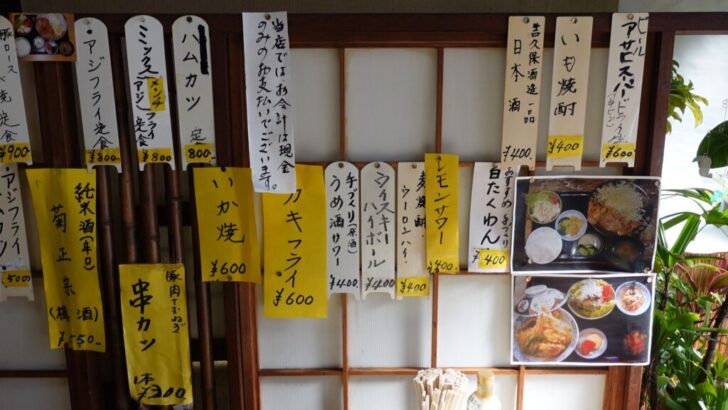 豚ロース焼定食
¥900
アジフライ定食
¥800
ミックスフライ定食
メンチ
アジ
¥800
ハムカツ
定
800
当店ではお会計は現金
のみのお支払いでございます。
吉久保酒造 一品
日本酒
¥400
いも焼酎
¥400
ビール
アサヒスーパードライ
(中ビン)
¥600
アジフライ
500
純米酒(辛口)
菊正宗(樽酒)
¥550
豚肉・玉ねぎ
串カツ
1本
¥300
いか焼
¥600
カキフライ
¥600
手づくり(原酒)
うめ酒サワー
¥400
ウイスキー
ハイボール
¥400
麦焼酎
ウーロンハイ
¥400
レモンサワー
400
おすすめ 手づくり
白たくわん
¥400